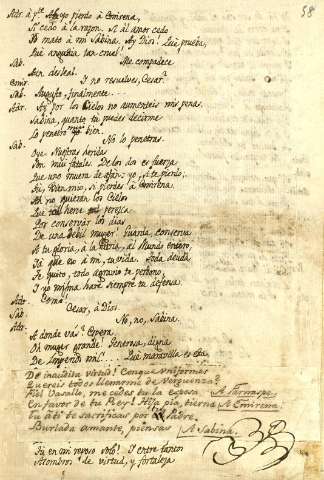 58
Adr. á y.te. Luego pierdo á Emirena,
Si cedo á la razon. Si al amor cedo
Yo mato á mi Sabina. Ay Dios! Que prueba,
Que angustia tan cruel!
Sab. Me compadece
Aun desleal.
Emir. Y no resuelves, Cesar?
Sab. Augusto, finalmente....
Adr. Ay por los Cielos no aumenteis mis penas.
Sabina, quanto tu puedes decirme
Lo penetro muy bien.
Sab. No lo penetras.
Que nuestras heridas
Son muy fatales. De los dos es fuerza
Que uno muera de afan: yo, si te pierdo;
Tu, si pierdes á Emirena.
Ah no quieran los Cielos
Que tal heroe perezca
Por conservar los dias
De una debil muger! Guarda, conserva
A tu gloria, á la Patria, al Mundo entero,
Ya que no á mi, tu vida. Toda deuda
Te quito, todo agravio te perdono,
Y yo misma haré siempre tu defensa.
Adr. Como?
Sab. Cesar, á Dios.
Adr. No, no, Sabina.
A donde vas? Espera.
Oh muger grande! Generosa, digna
De
De inaudita virtud! Conque uniformes
Quereis todos llenarme de verguenza?
Fiel Vasallo, me cedes tu la esposa A Farnaspe
En favor de tu Rey! Hija pia, tierna A Emirena
Tu á ti te sacrificas por tu Padre.
Burlada amante, piensas A Sabina.
Tu en mi reposo solo! Y entre tantos
Asombros de virtud, y fortaleza